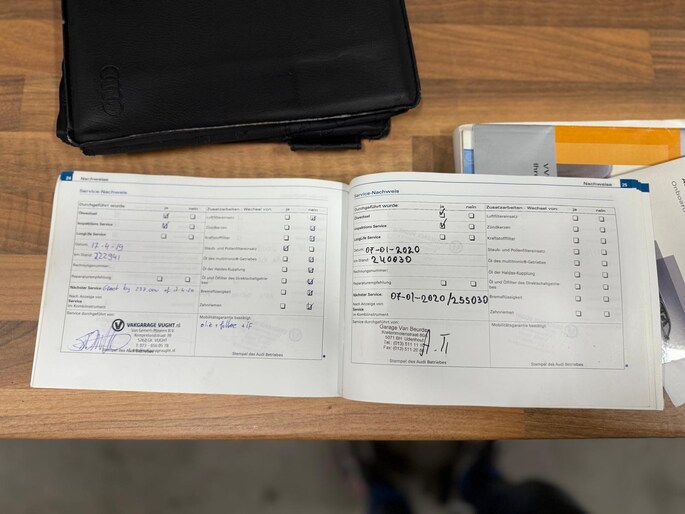 24
Nachweise
Service-Nachweis
Durchgeführt wurde:
ja
nein
Zusatzarbeiten - Wechsel von:
ja
nein
Ölwechsel
Luftfiltereinsatz
Inspektions-Service
Zündkerzen
LongLife Service
Kraftstofffilter
Datum:
Staub- und Pollenfiltereinsatz
km-Stand: 222941
Öl des multitronic® Getriebes
Rechnungsnummer:
Öl der Haldex-Kupplung
Reparaturempfehlung:
Öl und Ölfilter des Direktschaltgetriebes
Nächster Service
Bremsflüssigkeit
Nach Anzeige von
Service
im Kombiinstrument
Zahnriemen
Service durchgeführt von:
Mobilitätsgarantie benötigt:
VAKGARAGE VUGHT
Stempel des Audi Betriebes
Nachweise
25
Service-Nachweis
Durchgeführt wurde:
ja
nein
Zusatzarbeiten - Wechsel von:
ja
nein
Ölwechsel
Luftfiltereinsatz
Inspektions-Service
Zündkerzen
LongLife Service
Kraftstofffilter
Datum: 07-01-2020
Staub- und Pollenfiltereinsatz
km-Stand: 240030
Öl des multitronic® Getriebes
Rechnungsnummer:
Öl der Haldex-Kupplung
Reparaturempfehlung:
Öl und Ölfilter des Direktschaltgetriebes
Nächster Service 07-01-2020/255030
Bremsflüssigkeit
Nach Anzeige von
Service
im Kombiinstrument
Zahnriemen
Service durchgeführt von:
Mobilitätsgarantie benötigt:
Garage Van Beurden
5071 BH Udenhout
Stempel des Audi Betriebes